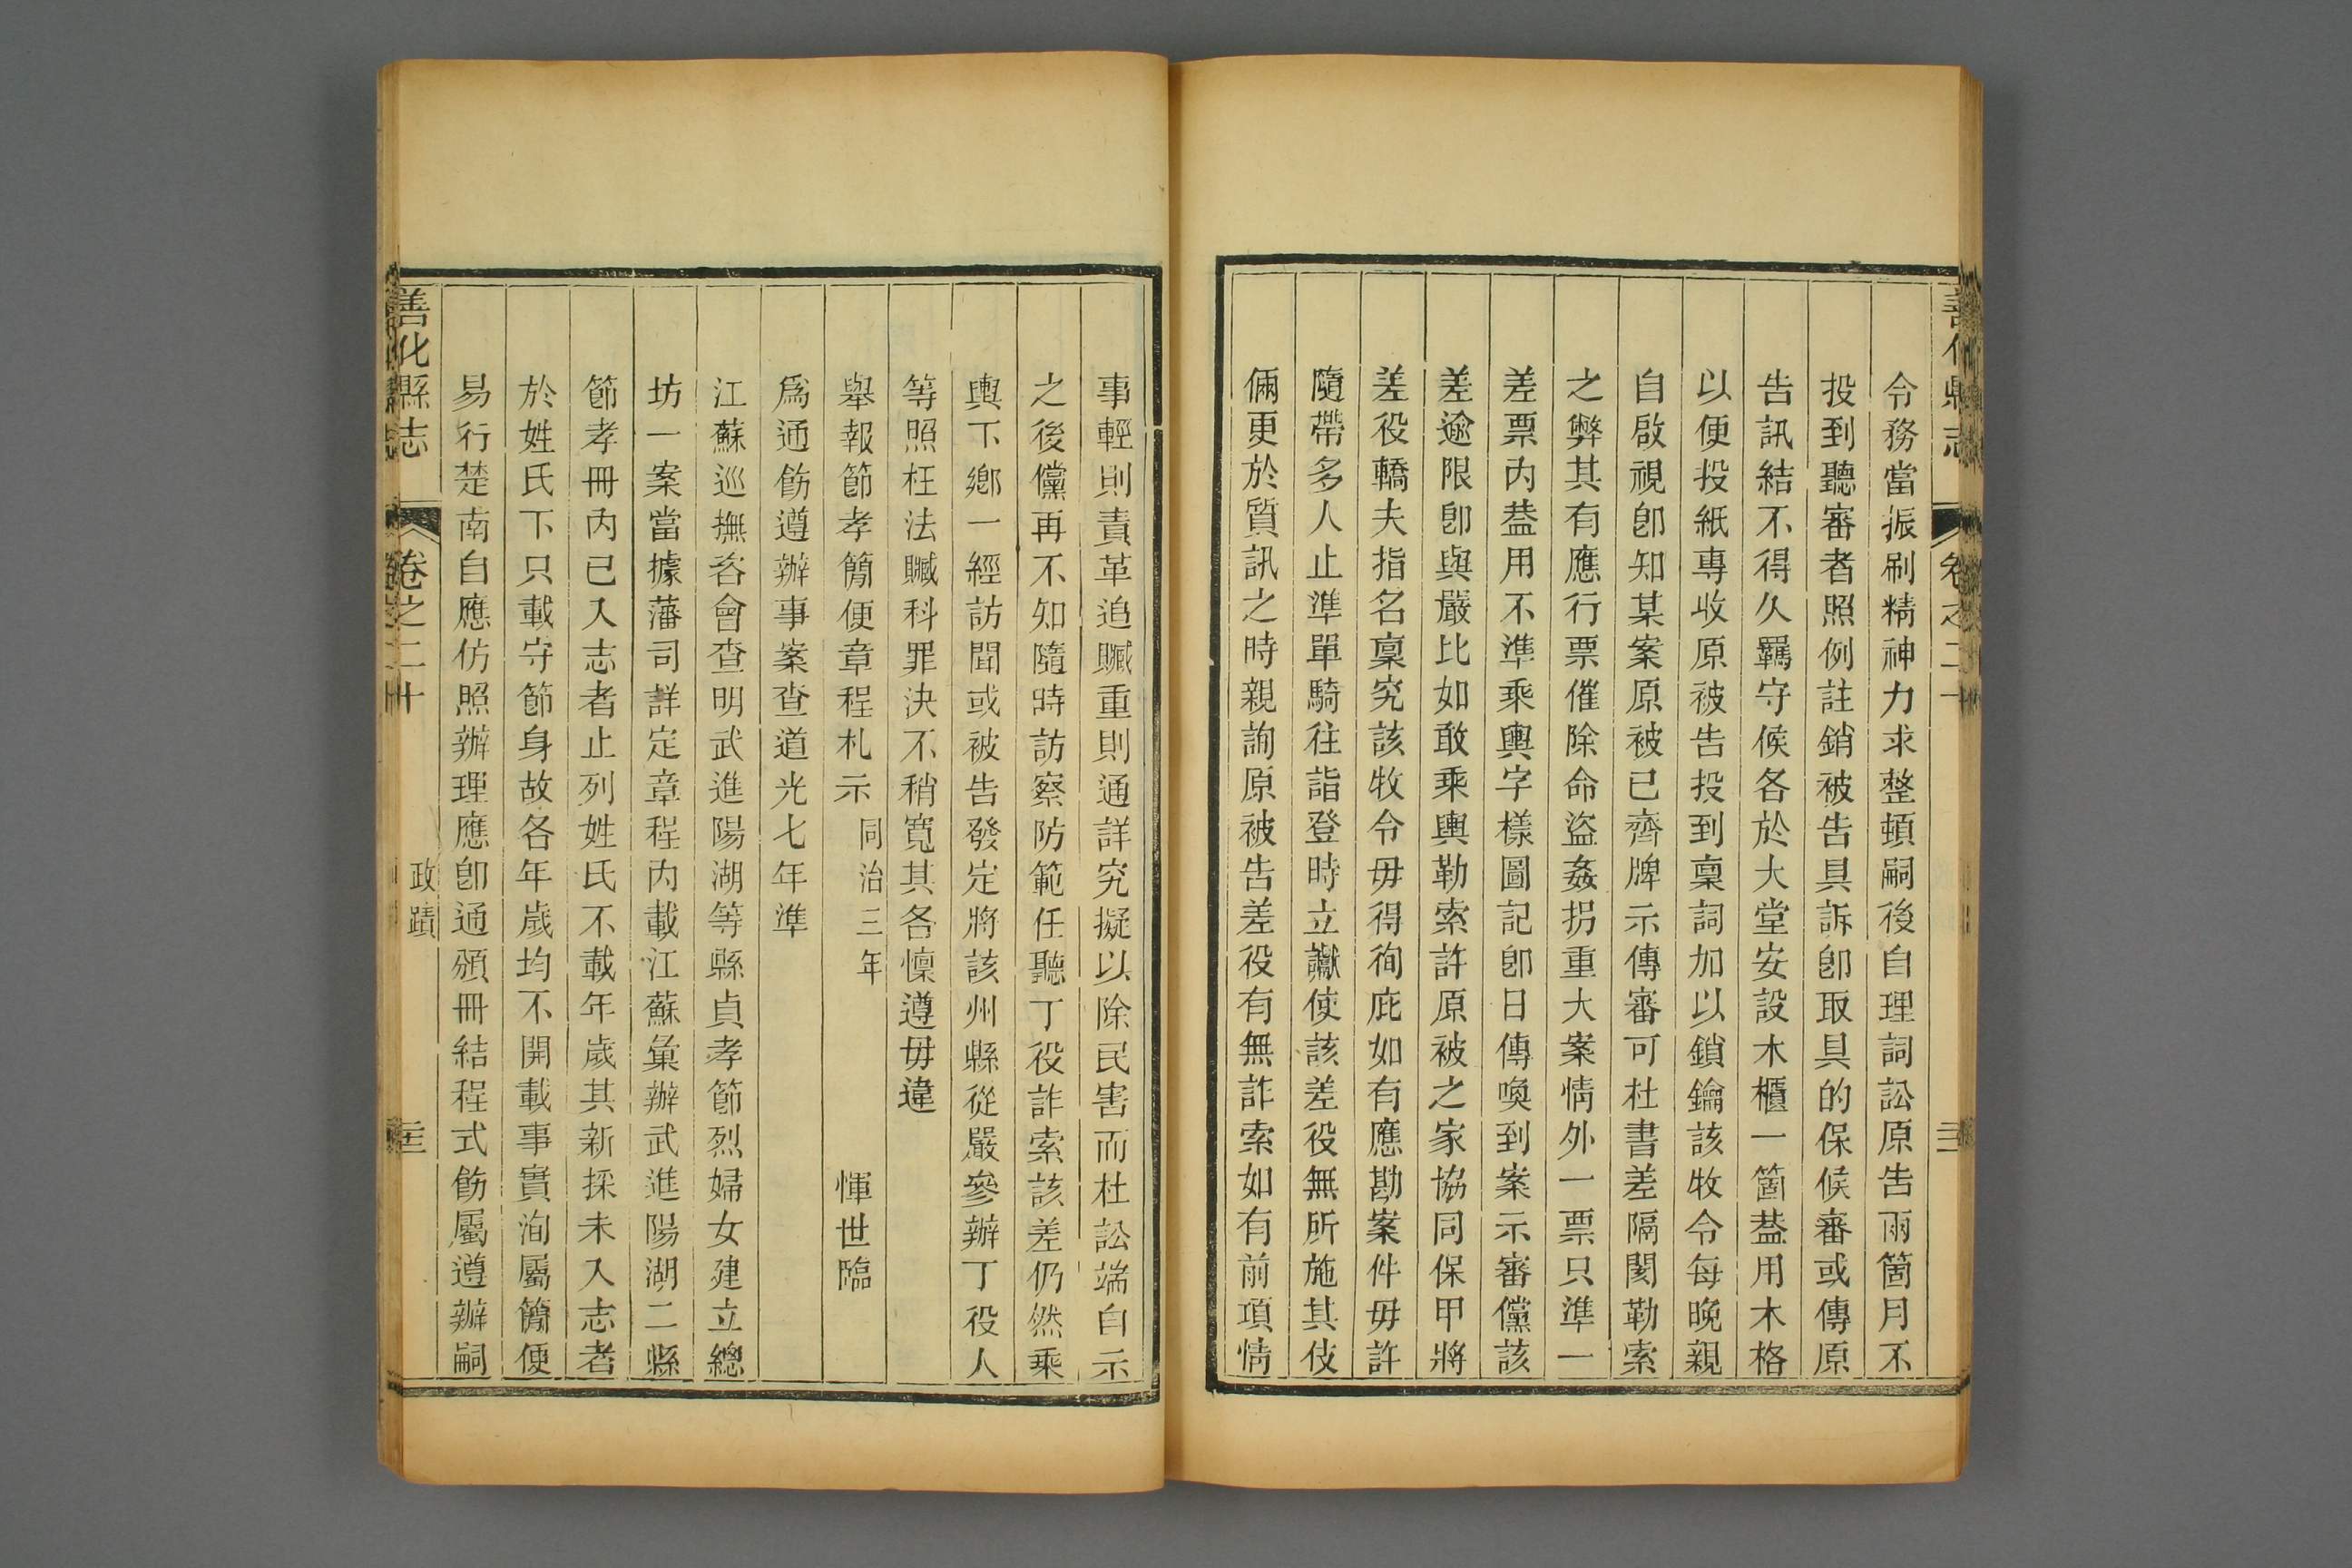 善化縣志 卷之二十
令務當振刷精神力求整頓嗣後自理詞訟原告兩箇月不
投到聽審者照例註銷被告具訴卽取具的保候審或傳原
告訊結不得久羈守候各於大堂安設木櫃一箇葢用木格
以便投紙專收原被告投到稟詞加以鎖鑰該牧令每晚親
自啟視卽知某案原被已齊牌示傳審可杜書差隔閡勒索
之弊其有應行票催除命盜姦拐重大案情外一票只準一
差票內葢用不準乘輿字樣圖記卽日傳喚到案示審儻該
差逾限卽與嚴比如敢乘輿勒索許原被之家協同保甲將
差役轎夫指名稟究該牧令毋得徇庇如有應勘案件毋許
隨帶多人止準單騎往詣登時立讞使該差役無所施其伎
倆更於質訊之時親詢原被告差役有無詐索如有前項情
事輕則責革追贓重則通詳究擬以除民害而杜訟端自示
之後儻再不知隨時訪察防範任聽丁役詐索該差仍然乘
輿下鄉一經訪聞或被告發定將該州縣從嚴參辦丁役人
等照枉法贓科罪決不稍寬其各懍遵毋違
舉報節孝簡便章程札示 同治三年 惲世臨
爲通飭遵辦事案查道光七年準
江蘇巡撫咨會查明武進陽湖等縣貞孝節烈婦女建立總
坊一案當據藩司詳定章程內載江蘇彙辦武進陽湖二縣
節孝冊內已入志者止列姓氏不載年歲其新採未入志者
於姓氏下只載守節身故各年歲均不開載事實洵屬簡便
易行楚南自應仿照辦理應卽通頒冊結程式飭屬遵辦嗣
善化縣志 卷之二十 政蹟